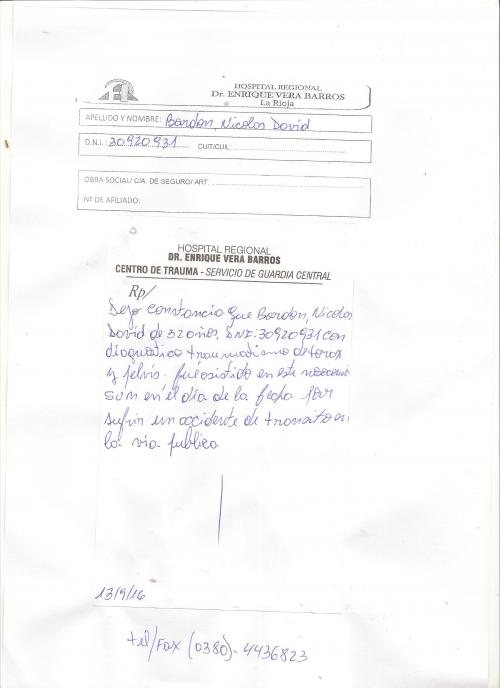 HOSPITAL REGIONAL
Dr. ENRIQUE VERA BARROS
La Rioja
APELLIDO Y NOMBRE: Bordon, Nicolas David
D.N.I.: 30920931 CUIT/CUIL:
OBRA SOCIAL/ C/A. DE SEGURO/ ART.
Nº DE AFILIADO:
HOSPITAL REGIONAL
DR. ENRIQUE VERA BARROS
CENTRO DE TRAUMA - SERVICIO DE GUARDIA CENTRAL
Rp/
Dejo constancia que Bordon, Nicolas
David de 32 años, DNI: 30920931 con
diagnostico traumatismo de torax
y pelvis. fué asistido en este nosocomi
en el día de la fecha por
sufrir un accidente de transito en
la via publica
13/9/16
tel/Fax (0380)- 4436823